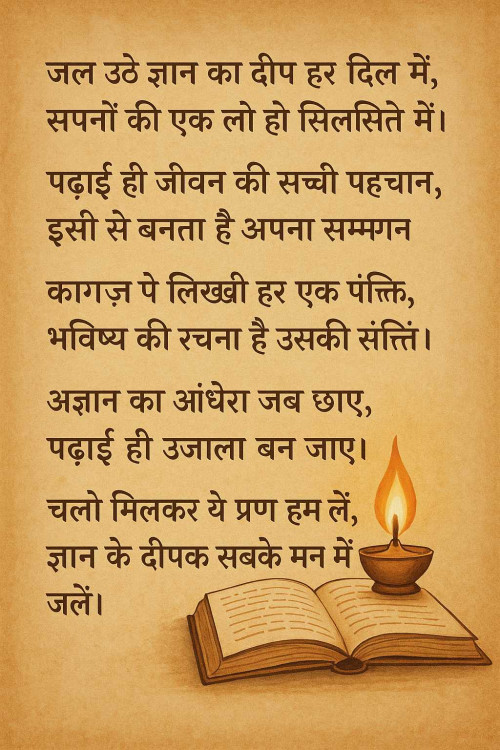 जल उठे ज्ञान का दीप हर दिल में,
सपनों की एक लो हो सिलसिते में।
पढ़ाई ही जीवन की सच्ची पहचान,
इसी से बनता है अपना सम्मगन
कागज़ पे लिखी हर एक पंक्ति,
भविष्य की रचना है उसकी संत्तिं।
अज्ञान का आंधेरा जब छाए,
पढ़ाई ही उजाला बन जाए।
चलो मिलकर ये प्रण हम लें,
ज्ञान के दीपक सबके मन में
जलें।